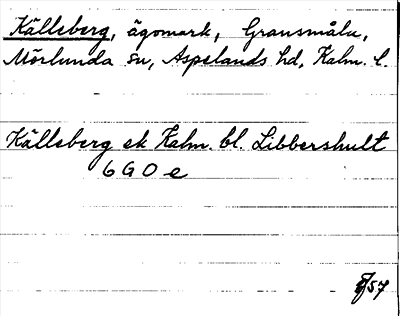 Källeberg, ägomark, Gransmåla,
Mörlunda sn, Aspelands hd, Kalm. l.
Källeberg ek Kalm. bl. Libbershult
6 G O e
57